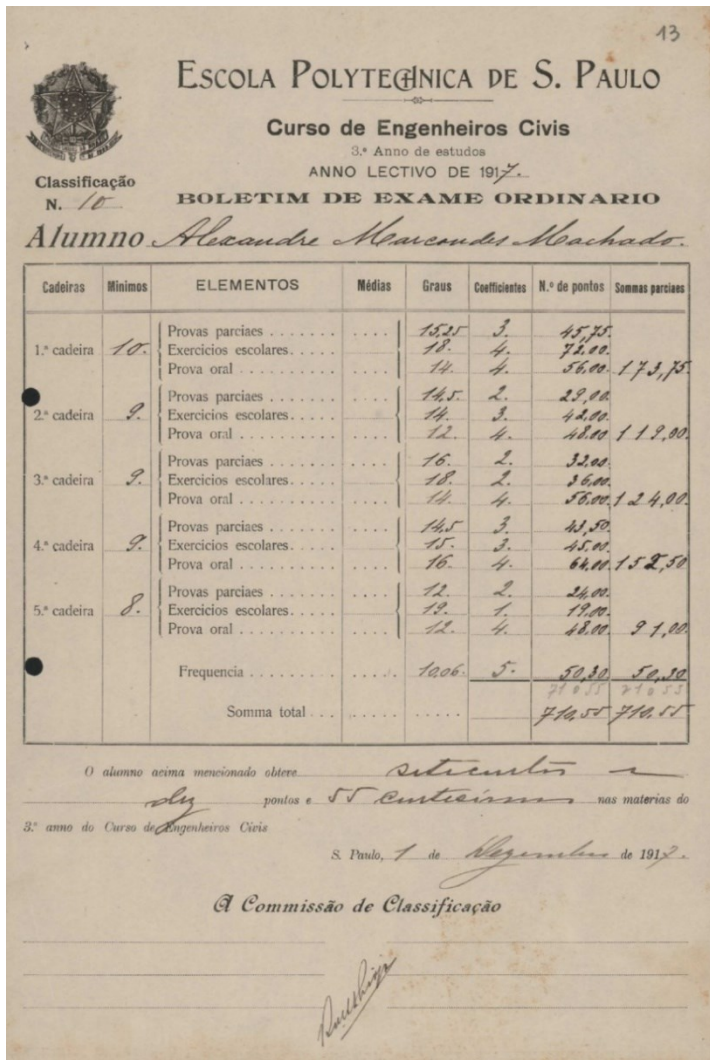 13
ESCOLA POLYTECHNICA DE S. PAULO
Curso de Engenheiros Civis
3.º Anno de estudos
ANNO LECTIVO DE 1917.
Classificação
N. 10
BOLETIM DE EXAME ORDINARIO
Alumno Alexandre Marcondes Machado.
Cadeiras Minimos ELEMENTOS Médias Graus Coefficientes N.º de pontos Sommas parciaes
Provas parciaes ........ .... 15,25 3. 45,75.
1.ª cadeira 10. Exercicios escolares..... .... 18. 4. 72.00.
Prova oral .......... .... 14 4. 56.00. 173,75.
Provas parciaes ........ .... 14,5. 2. 29,00.
2.ª cadeira 9. Exercicios escolares..... .... 14. 3. 42.00.
Prova oral .......... .... 12. 4. 48.00 119,00.
Provas parciaes ........ .... 16. 2. 32.00.
3.ª cadeira 9. Exercicios escolares..... .... 18. 2. 36.00.
Prova oral .......... .... 14 4. 56.00. 124,00.
Provas parciaes ........ .... 14,5 3. 43,50.
4.ª cadeira 9. Exercicios escolares..... .... 15. 3. 45.00.
Prova oral .......... .... 16 4. 64.00 152,50
Provas parciaes ........ .... 12 2. 24,00.
5.ª cadeira 8. Exercicios escolares..... .... 19. 1. 19.00.
Prova oral .......... .... 12 4. 48.00 91,00.
Frequencia ......... ..... 10,06. 5. 50,30 50,30
71055 71055
Somma total ... ..... ..... 710,55 710,55
O alumno acima mencionado obteve setecentos e
dez pontos e 55 centesimos nas materias do
3.º anno do Curso de Engenheiros Civis
S. Paulo, 1 de Dezembro de 1917.
A Commissão de Classificação